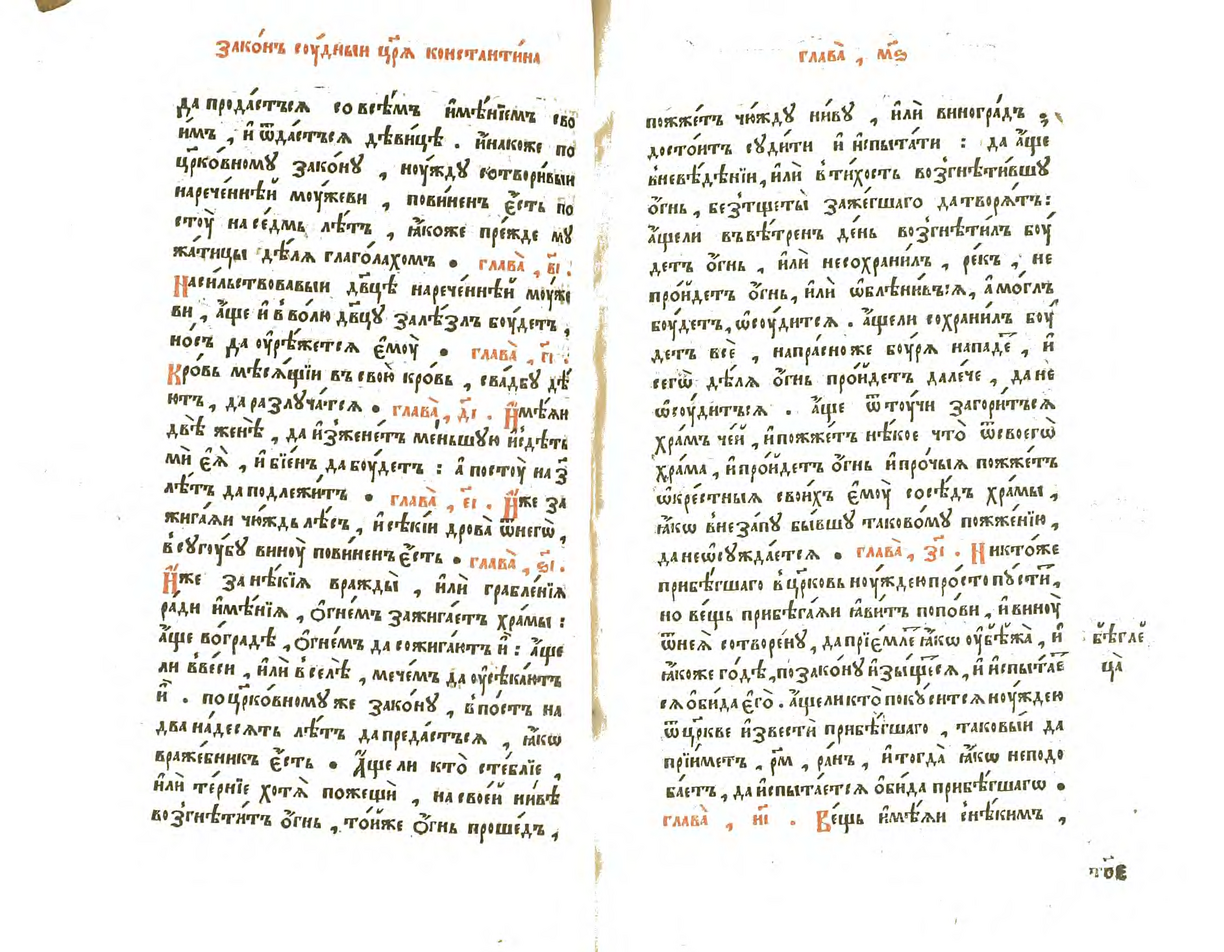 Зако́нъ соу́дныи цр҃ѧ̀ константи́на
да прода́стъсѧ со всѣ́мъ имѣ́нїємъ сво
и́мъ , и҆ ѿда́стъсѧ дѣви́цѣ . и҆на́коже по
цр҃ко́вному зако́ну , ноу́жду сотвори́выи
нарече́ннѣй моу́жеви , пови́ненъ є҆́сть по
стоу̀ на се́дмь лѣ́тъ , ꙗ҆́коже пре́жде мѹ
жа́тицы дѣ́лѧ глаго́лахомъ . глава̀ , в҃і .
Наси́льствовавыи дв҃цѣ нарече́ннѣй моу́же
ви , а҆́ще и҆ в во́лю дв҃цу залѣ́злъ бѹ́детъ ,
но́съ да оу҆рѣ́жетсѧ є҆моу̀ . глава̀ , г҃і .
Кро́вь мѣсѧ́щїи въ свою̀ кро́вь , сва́дбѹ дѣ́
ютъ , да разлуча́тсѧ . глава̀ , д҃і . И҆мѣ́ѧи
двѣ̀ женѣ̀ , да и҆зжене́тъ ме́ньшую и҆ з дѣтъ
мѝ є҆ѧ̀ , и҆ бїе́нъ да бѹ́детъ : а҆ постоу̀ на з҃
лѣ́тъ да подлежи́тъ . глава̀ , є҃і . И҆́же за
жига́ѧи чю́ждь лѣ́съ , и҆ сѣкі́и дрова̀ ѿ негѡ̀ ,
в сугоу́бу виноу̀ пови́ненъ є҆́сть . глава̀ , ѕ҃і .
И҆́же за нѣ́кїѧ вражды̀ , и҆лѝ грабле́нїѧ
ра́ди и҆мѣ́нїѧ , ѻ҆гне́мъ зажига́етъ хра́мы :
а҆́ще во гра́дѣ , ѻ҆гне́мъ да сожига́ютъ и҆̀ : а҆́ще
ли в ве́си , и҆лѝ в селѣ̀ , мече́мъ да оу҆сѣка́ютъ
и҆̀ . по цр҃ко́вному же зако́ну , в по́стъ на
два на́десѧть лѣ́тъ да преда́стъсѧ , ꙗ҆́кѡ
враже́бникъ є҆́сть . А҆́ще ли кто̀ сте́блїе ,
и҆лѝ те́рнїе хотѧ̀ пожещѝ , на свое́й ни́вѣ
возгнѣти́тъ ѻ҆́гнь , то́йже ѻ҆́гнь проше́дъ ,
глава̀ , м҃ѕ
пожже́тъ чю́жду ни́ву , и҆лѝ виногра́дъ ;
досто́итъ суди́ти и҆ и҆спыта́ти : да а҆́ще
в невѣ́дѣнїи , и҆лѝ в ти́хость возгнѣти́вшу
ѻ҆́гнь , без̾тщеты̀ заже́гшаго да творѧ́тъ :
а҆́щели въ вѣ́тренъ де́нь возгнѣти́лъ боу́
детъ ѻ҆́гнь , и҆лѝ не сохрани́лъ , ре́къ , не
про́йдетъ ѻ҆́гнь , и҆лѝ ѡ҆блѣни́въсѧ , а҆ мо́глъ
боу́детъ , ѡ҆соу́дитсѧ . а҆́щели сохрани́лъ боу́
детъ всѐ , напра́сно же боу́рѧ нападе́ , и҆
сегѡ̀ дѣ́лѧ ѻ҆́гнь про́йдетъ дале́че , да не
ѡ҆соу́дитъсѧ . а҆́ще ѿ тоу́чи загори́тъсѧ
хра́мъ че́й , и҆ пожже́тъ нѣ́кое что̀ ѿ своегѡ̀
хра́ма , и҆ про́йдетъ ѻ҆́гнь и҆ про́чыѧ пожже́тъ
ѡ҆кре́стныѧ свои́хъ є҆моу̀ сосѣ́дъ хра́мы ,
ꙗ҆́кѡ внеза́пу бы́вшу таково́му пожже́нїю ,
да не ѡ҆сужда́етсѧ . глава̀ , з҃і . Никто́же
прибѣ́гшаго в цр҃ковь ноу́ждею про́сто пу́сти́ ,
но ве́щь прибѣга́ѧи ꙗ҆ви́тъ попо́ви , и҆ виноу̀
ѿ неѧ̀ сотворе́ну , да прїе́мле ꙗ҆́кѡ оу҆бѣжа̀ , и҆
ꙗ҆́коже го́дѣ , по зако́ну и҆зы́щесѧ , и҆ и҆спыта́е
сѧ ѻ҆би́да є҆го̀ . а҆́щели кто̀ поку́ситсѧ ноу́ждею
ѿ цр҃кве и҆звестѝ прибѣ́гшаго , таковы́й да
прїи́метъ , р҃м , ра́нъ , и҆ тогда̀ ꙗ҆́кѡ неподо
ба́етъ , да и҆спыта́етсѧ ѻ҆би́да прибѣ́гшагѡ .
глава̀ , и҃і . Ве́щь и҆мѣ́ѧи с нѣ́кимъ ,
бѣ́глє
ца̀
то́е